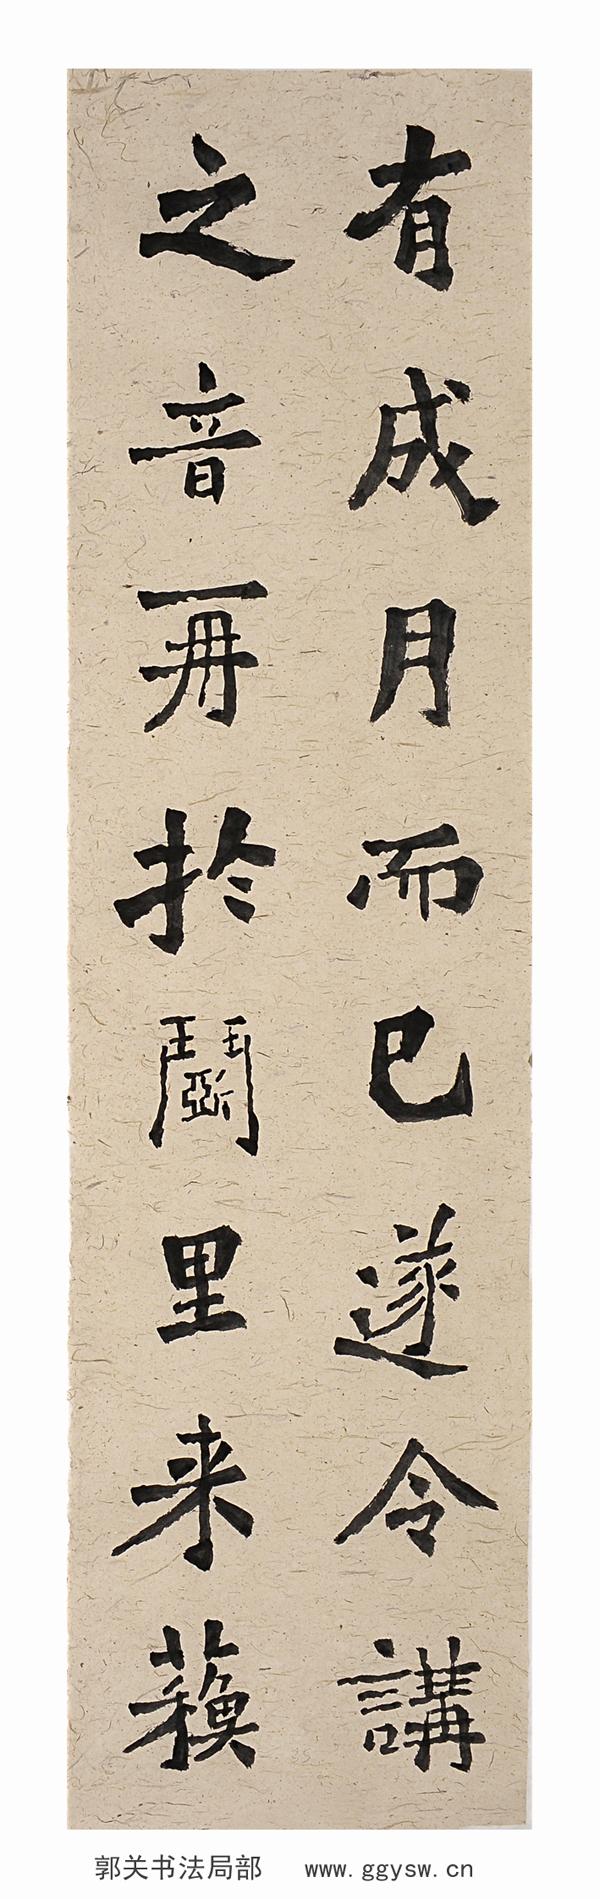 有成月而已遂令講
之音再於鬭里来蘓
郭关书法局部 www.ggysw.cn